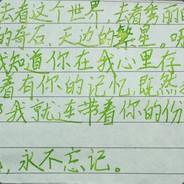 着这个世界，去看秀丽
的奇石，天边的繁星。
我知道你在我心里存
着有你的记忆，既然
那我就连带着你的份
，永不忘记。